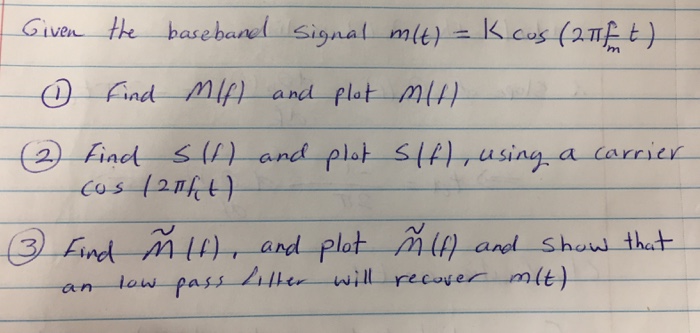 Given the baseband signal m(t) = K cos (2πfmt)
① Find M(f) and plot M(f)
② Find S(f) and plot S(f), using a carrier
cos (2πfct)
③ Find M̃(f), and plot M̃(f) and show that
an low pass filter will recover m(t)